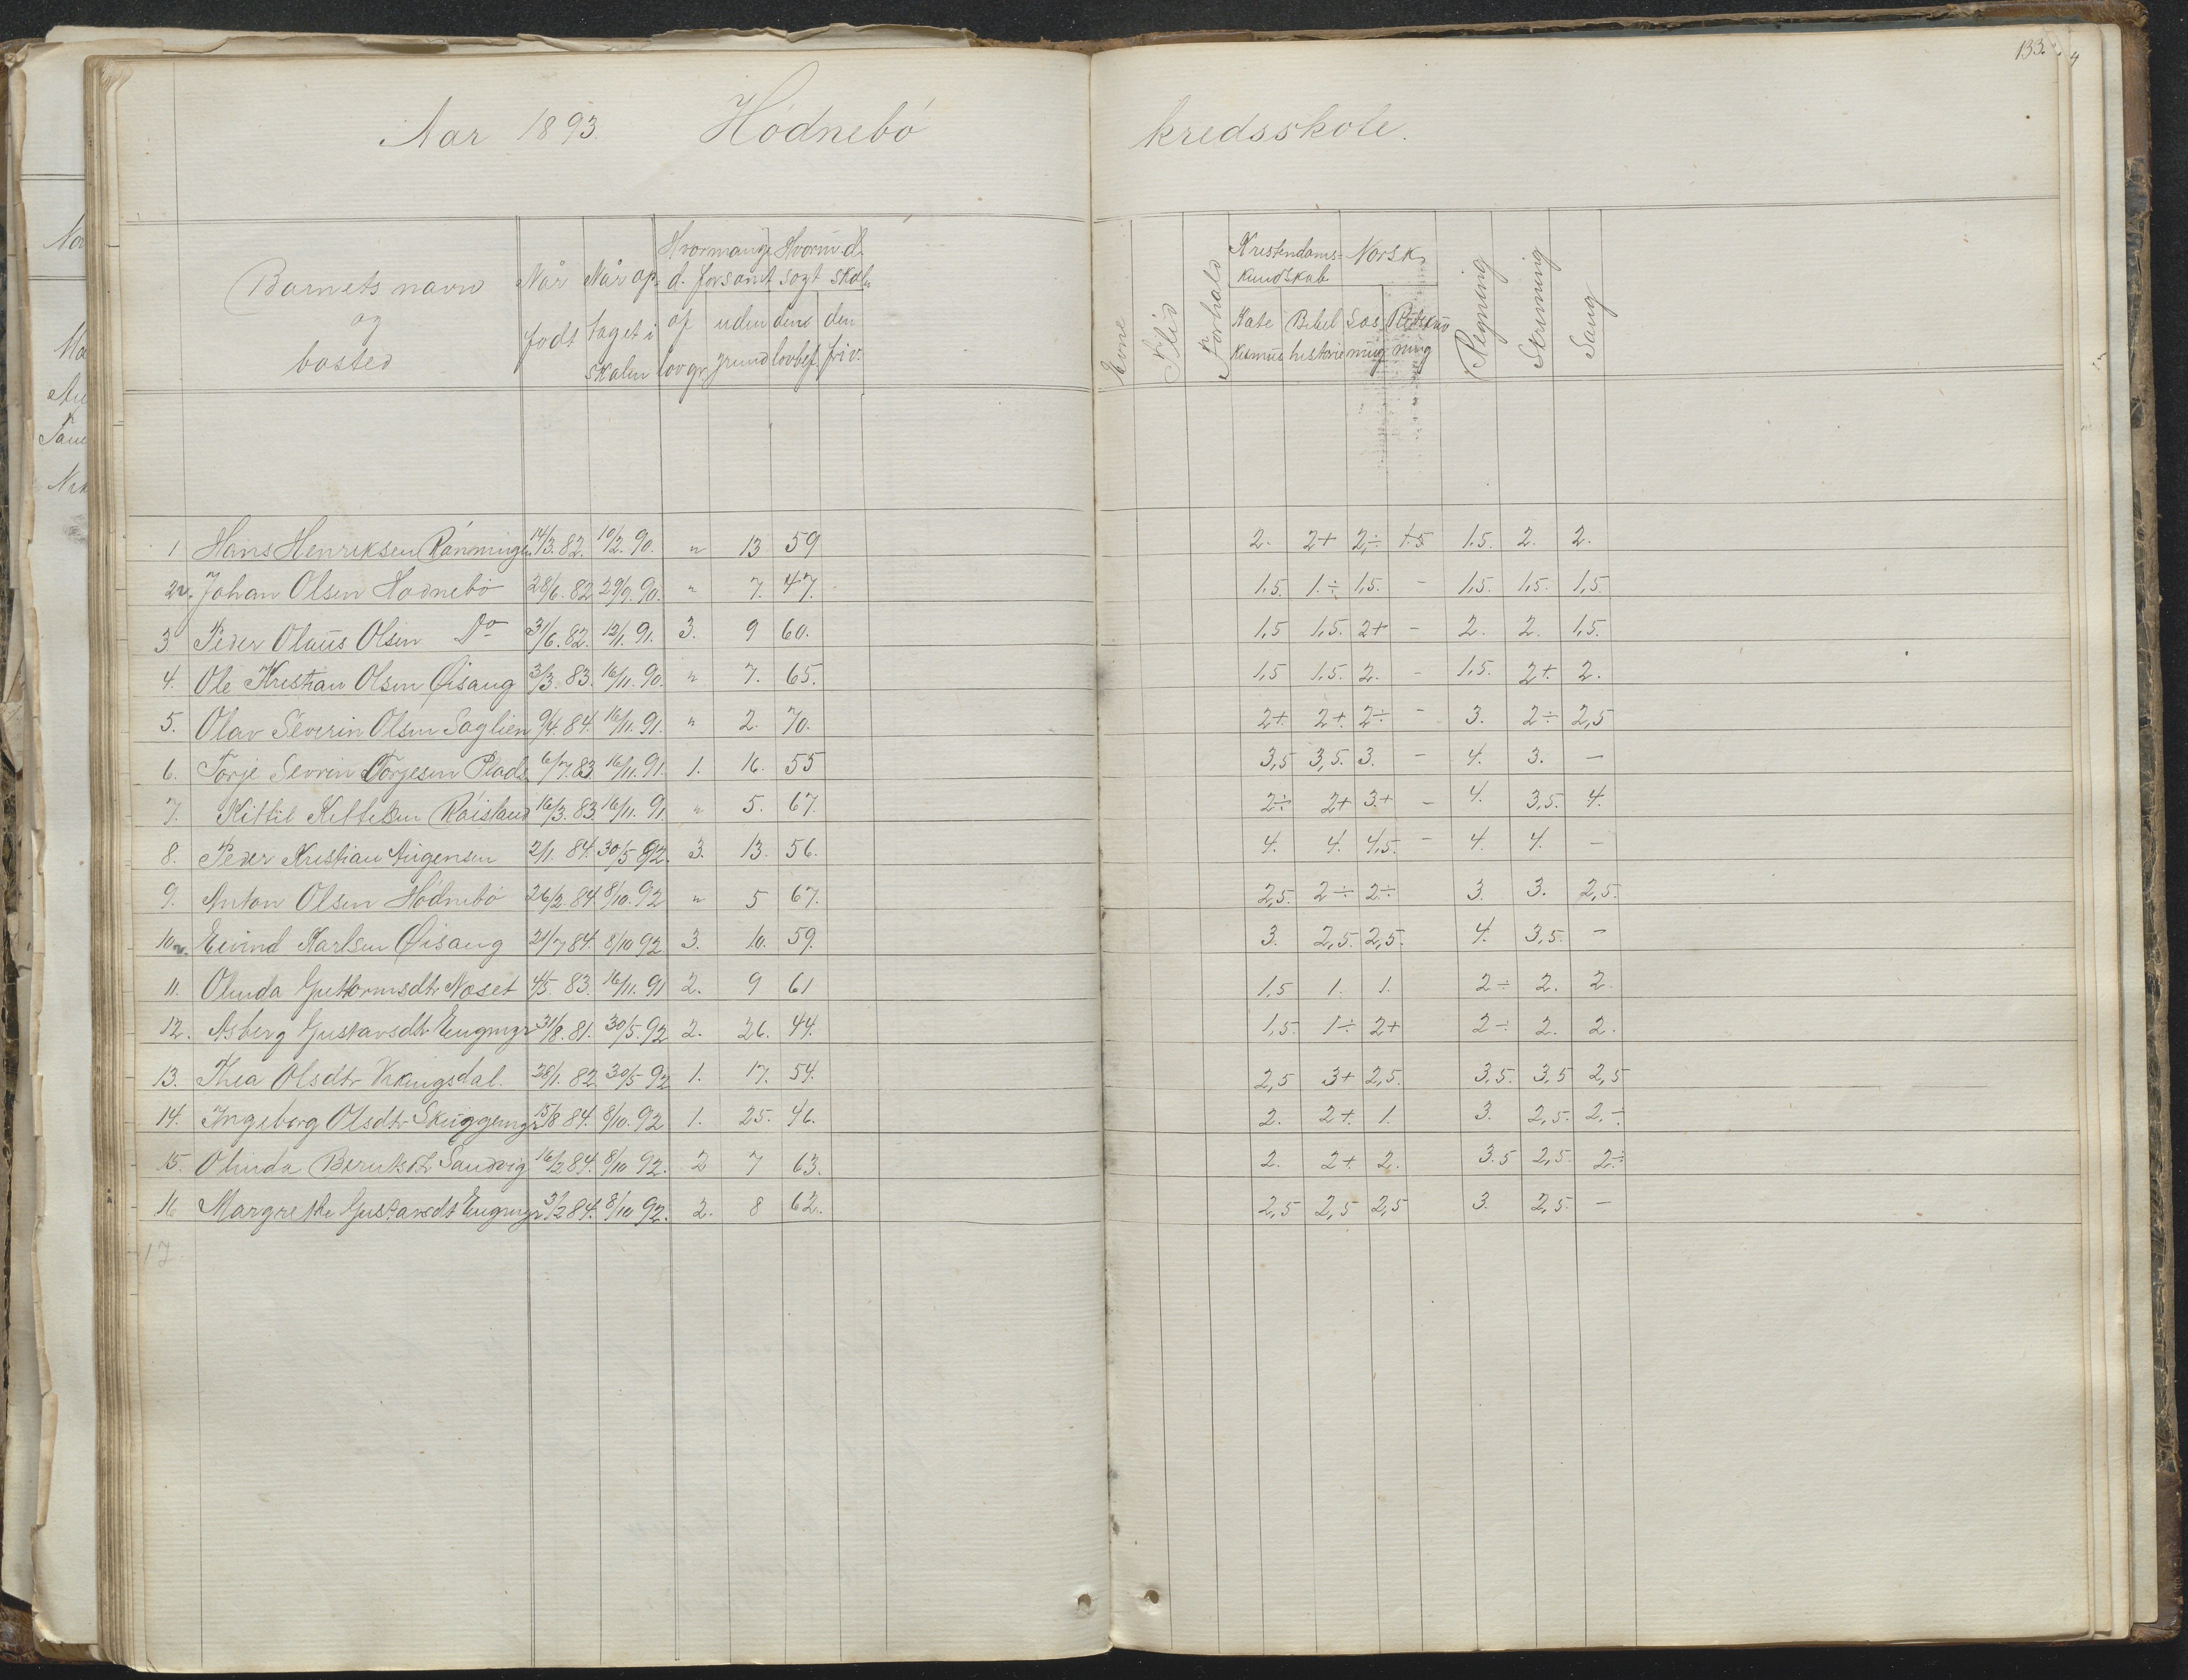 133.
Aar 1893. Hódnebó kredsskole.
Barnets navn og bosted | Når født | Når optaget i skolen | Hvormange d. forsømt af lovgr. | uden grund | Hvormd. søgt skole den lovbef. | den friv. | Evne | Flid | Forhold | Kristendomskundskab Katekismus | Bibelhistorie | Norsk Læsning | Retskrivning | Regning | Skrivning | Sang
1 Hans Henriksen Rønningen 14/3. 82. 10/2. 90. " 13 59 2. 2+ 2÷ 1.5 1.5. 2. 2.
2. Johan Olsen Hødnebø 28/6. 82 29/9. 90. " 7. 47. 1.5. 1.÷ 1,5. - 1,5. 1,5. 1,5.
3 Peder Olaus Olsen Do 31/6. 82. 12/1. 91. 3. 9 60. 1,5 1,5. 2+ - 2. 2. 1,5.
4. Ole Kristian Olsen Øisang 3/3. 83. 16/11. 90. " 7. 65. 1,5 1.5. 2. - 1,5. 2+. 2.
5. Olav Severin Olsen Saglien 9/4. 84. 16/11. 91. " 2. 70. 2+. 2+. 2÷ - 3. 2÷ 2,5
6. Torje Sevrin Torjesen Plads 6/7. 83. 16/11. 91. 1. 16. 55 3,5 3,5. 3. - 4. 3. —
7. Kittil Kittelsen Røisland 16/3. 83. 16/11. 91 " 5. 67. 2÷ 2+ 3+ - 4. 3,5. 4.
8. Peder Kristian Augensen 2/1. 84. 30/5 92. 3. 13. 56. 4. 4. 4,5. - 4. 4. —
9. Anton Olsen Hódnebó 26/2. 84. 8/10. 92 " 5 67. 2,5. 2÷ 2÷ 3. 3. 2,5.
10. Eivind Karlsen Øisang 21/7 84. 8/10 92. 3. 10. 59. 3. 2,5. 2,5. 4. 3,5. -
11. Olinda Guttormsdtr Næset 4/5. 83. 16/11. 91 2. 9 61 1,5 1. 1. 2÷ 2. 2.
12. Asberg Gustavsdtr Engmyr 31/8. 81. 30/5. 92 2. 26. 44. 1,5. 1÷ 2+ 2÷ 2. 2.
13. Thea Olsdtr Vikingsdal. 28/1. 82 30/5 92 1. 17. 54. 2,5 3+ 2,5. 3,5. 3,5 2,5
14. Ingeborg Olsdtr Skuggemyr 15/8 84. 8/10. 92 1. 25. 46. 2. 2+. 1. 3. 2,5. 2.÷
15. Olinda Sandvig 16/2 84. 8/10 92. 2 7 63. 2. 2+. 2. 3.5 2,5. 2÷
16 Margrethe Gustavsdt Engmyr 3/2 84. 8/10 92. 2. 8 62. 2,5 2,5 2,5 3. 2,5. —
17